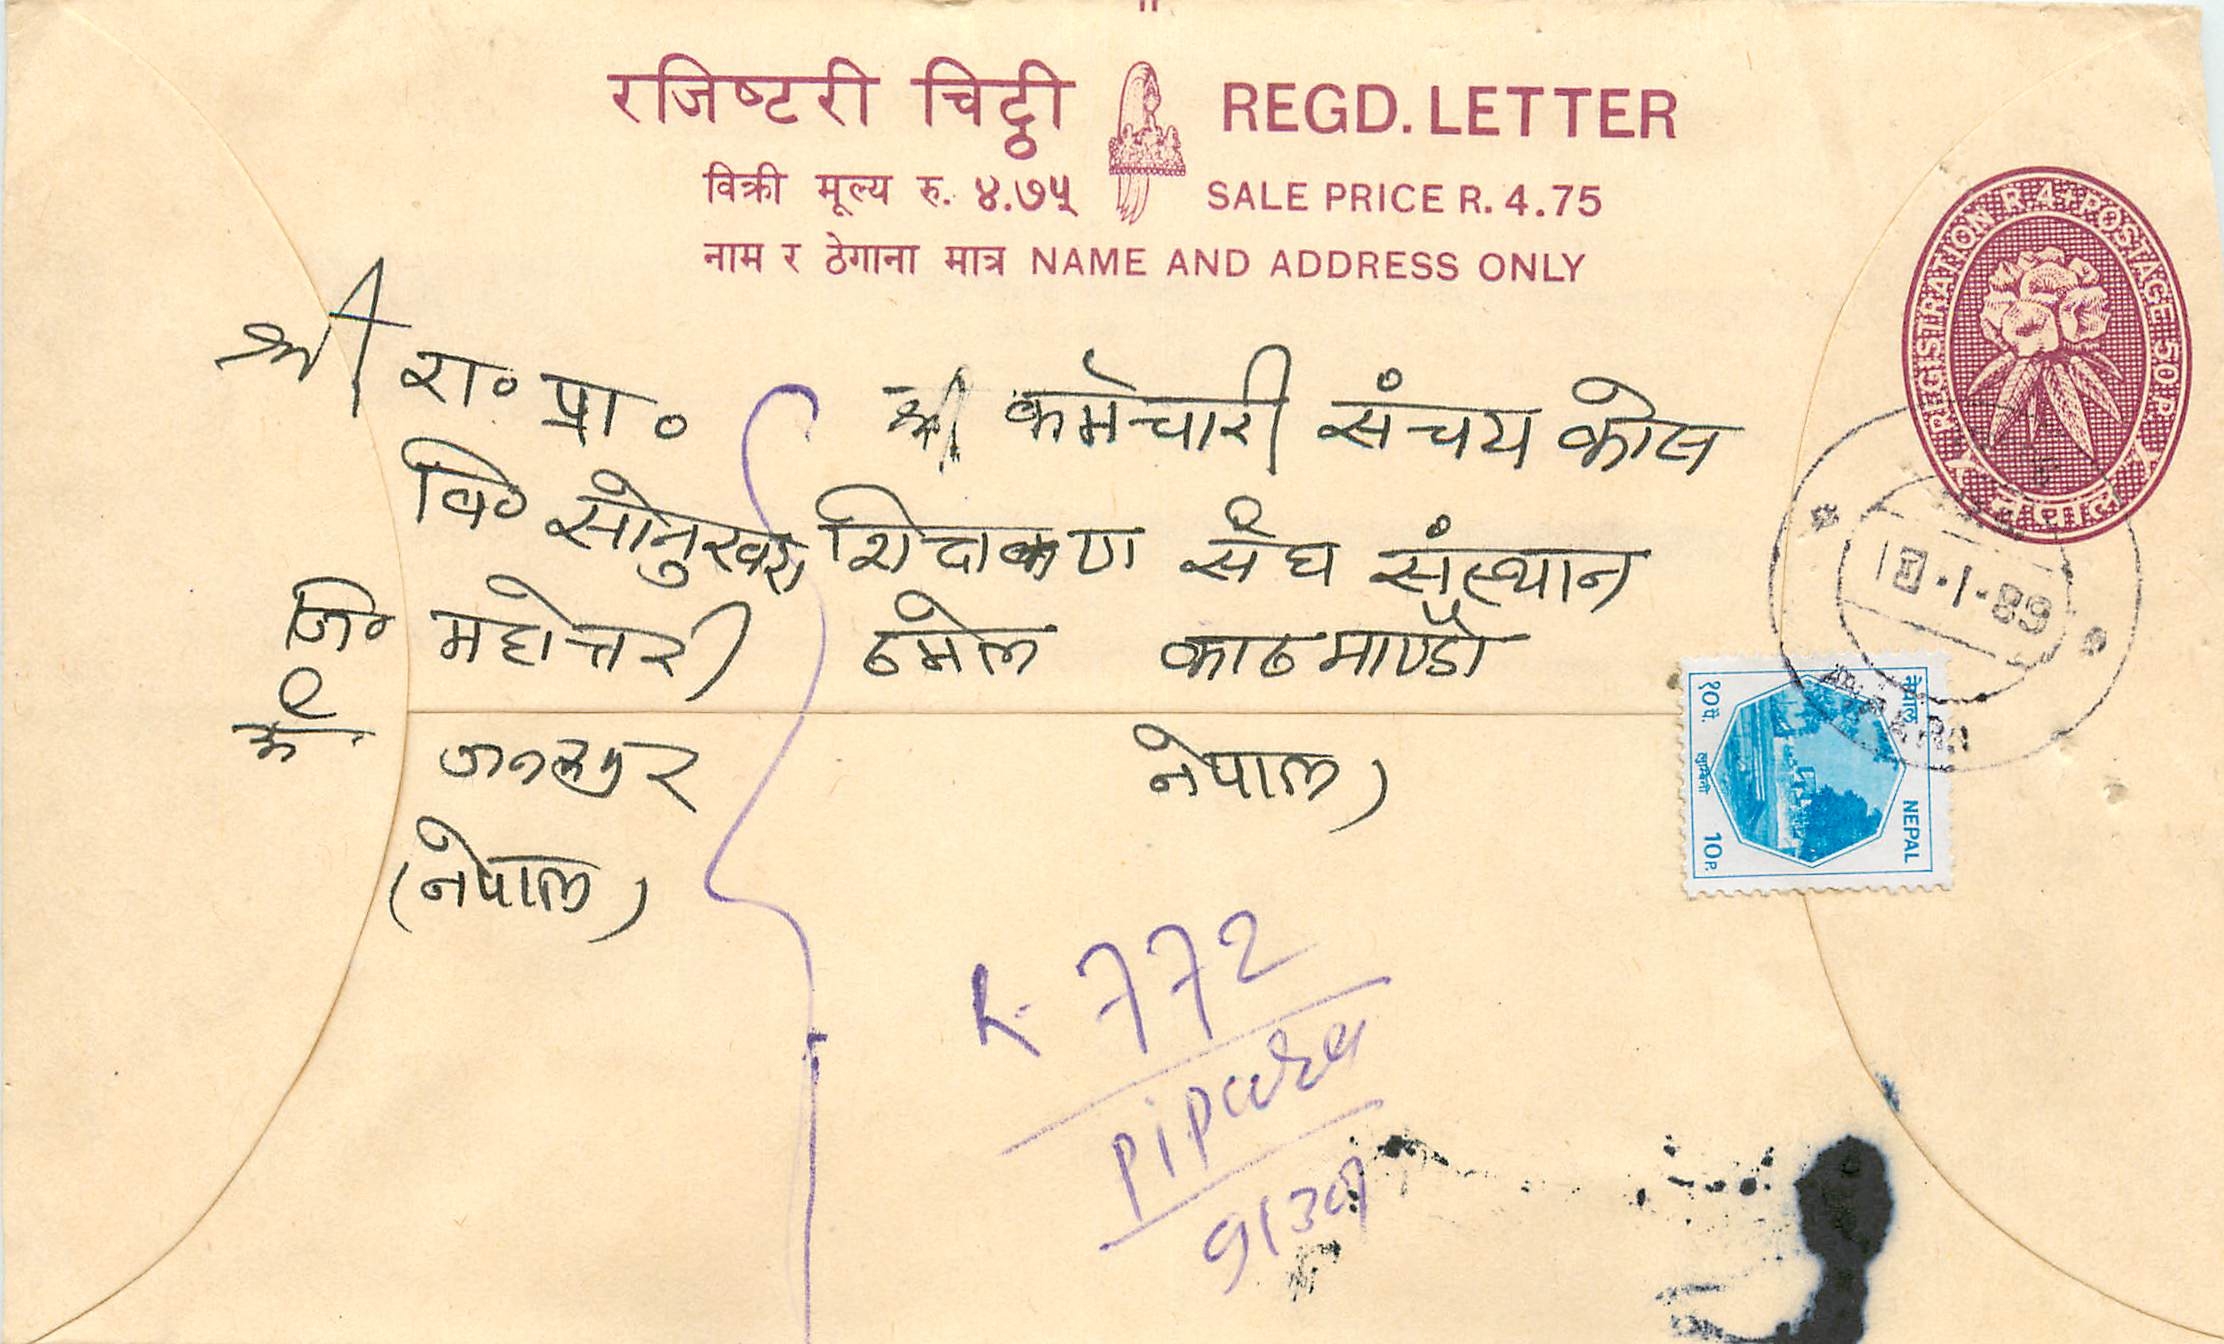 रजिष्टरी चिट्ठी REGD. LETTER
विक्री मूल्य रु. ४.७५ SALE PRICE R. 4.75
नाम र ठेगाना मात्र NAME AND ADDRESS ONLY
REGISTRATION R 4 + POSTAGE 50 P.
नेपाल
श्री रा० प्रा०
वि०
जि० महोत्तरी
जनकपुर
(नेपाल)
श्री कर्मचारी संचय कोस
संघ संस्थान
ठमेल काठमाण्डौ
नेपाल)
-1-89
नेपाल NEPAL
लुम्बिनी
१०पै. 10P.
R- 772
Pipara